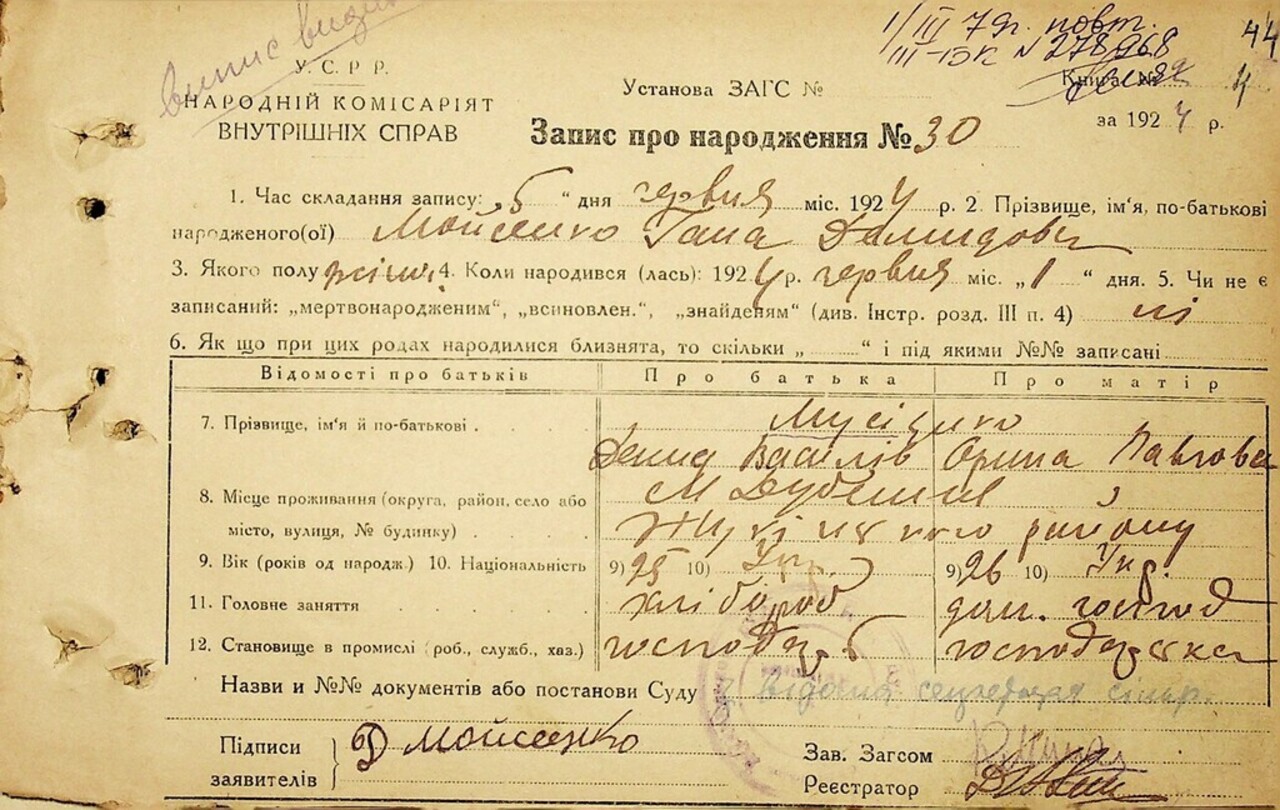 випис видан
1/III 7 др. повт.
III-БК № 278968
44
У. С. Р. Р.
НАРОДНІЙ КОМІСАРІЯТ
ВНУТРІШНІХ СПРАВ
Установа ЗАГС №
Книга № 4
за 1924 р.
Запис про народження № 30
1. Час складання запису: „5“ дня червня міс. 1924 р. 2. Прізвище, ім'я, по-батькові
народженого(ої) Мойсеенко Гана Демидовн
3. Якого полу жіноч. 4. Коли народився (лась): 1924 р. червня міс. „1“ дня. 5. Чи не є
записаний: „мертвонародженим“, „всиновлен.“, „знайденям“ (див. Інстр. розд. III п. 4) ні
6. Як що при цих родах народилися близнята, то скільки „ “ і під якими №№ записані
Відомості про батьків Про батька Про матір
7. Прізвище, ім'я й по-батькові Мусієнко
Демид Василів Орина Павлова
8. Місце проживання (округа, район, село або М
місто, вулиця, № будинку) району
9. Вік (років од народж.) 10. Національність 9) 25 10) Укр. 9) 26 10) Укр.
11. Головне заняття хлібороб дом. господ
12. Становище в промислі (роб., служб., хаз.) господар б господарска
Назви и №№ документів або постанови Суду відома секретаря сільр.
Підписи
заявителів Д Мойсеенко
Зав. Загсом
Реєстратор